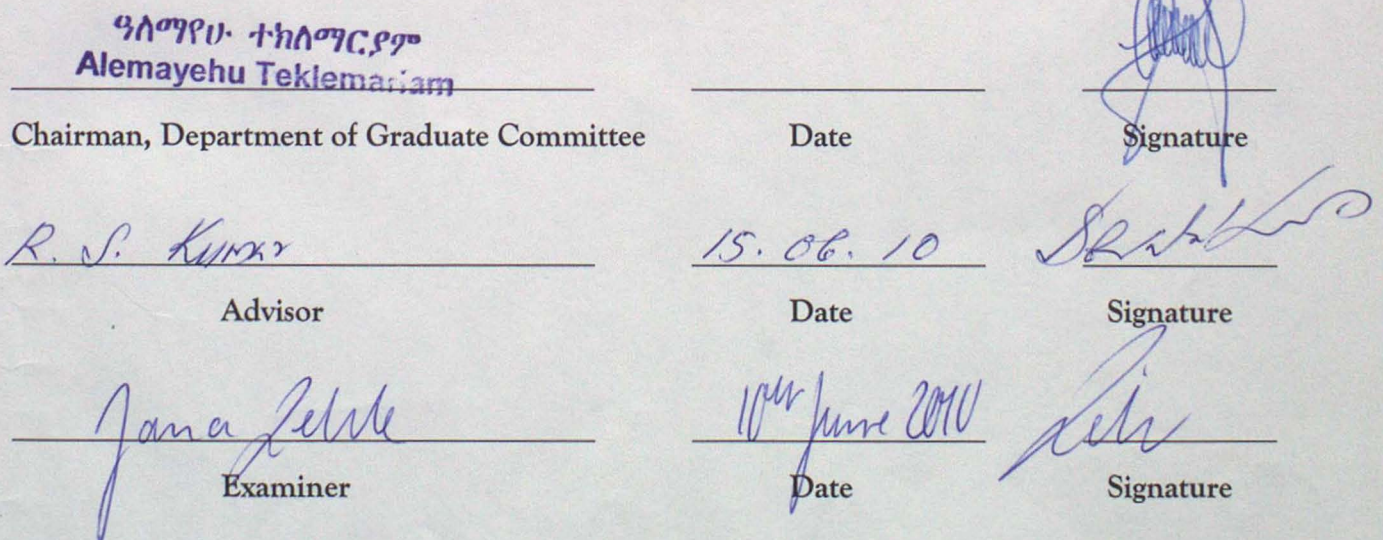 ዓለማየሁ ተክለማርያም
Alemayehu Teklemariam
Chairman, Department of Graduate Committee Date Signature
R. S. Kumar 15. 06. 10
Advisor Date Signature
Jana Zehle 10th June 2010
Examiner Date Signature